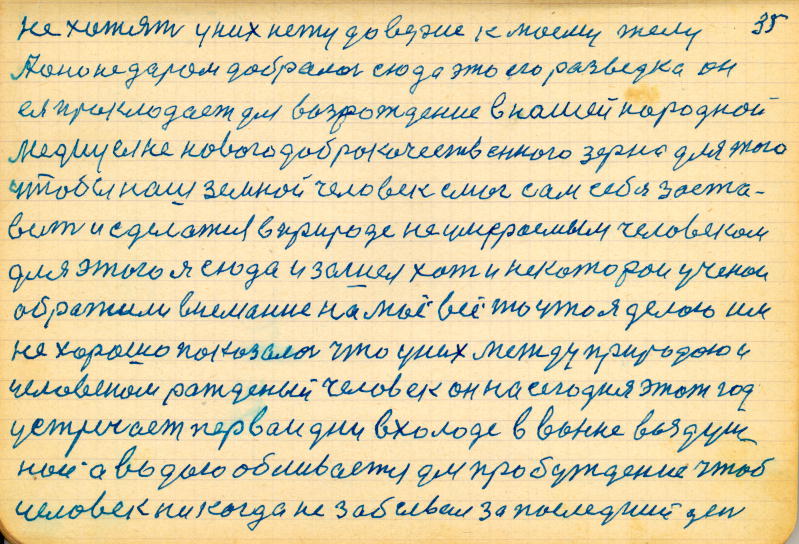 не хотят у них нету доверие к моему телу 35
А оно недаром добралос сюда это его разведка он
ея прокладает для возрождение в нашей народной
новогодоброкачественного зерна для того
чтобы наш земной человек смог сам себя заста-
вит и сделатися в природе неумераемым человеком
для этого я сюда и зашел хот и некоторои ученои
обратили внемание на моё всё то что я делаю им
не хорошо показалос что у них между природою и
человеком рожденый человек он на сегодня этот год
устречает перваи дни в холоде в ванне воздуш
нои а водою обливается для пробуждение чтоб
человек никогда не забывал за последний ден